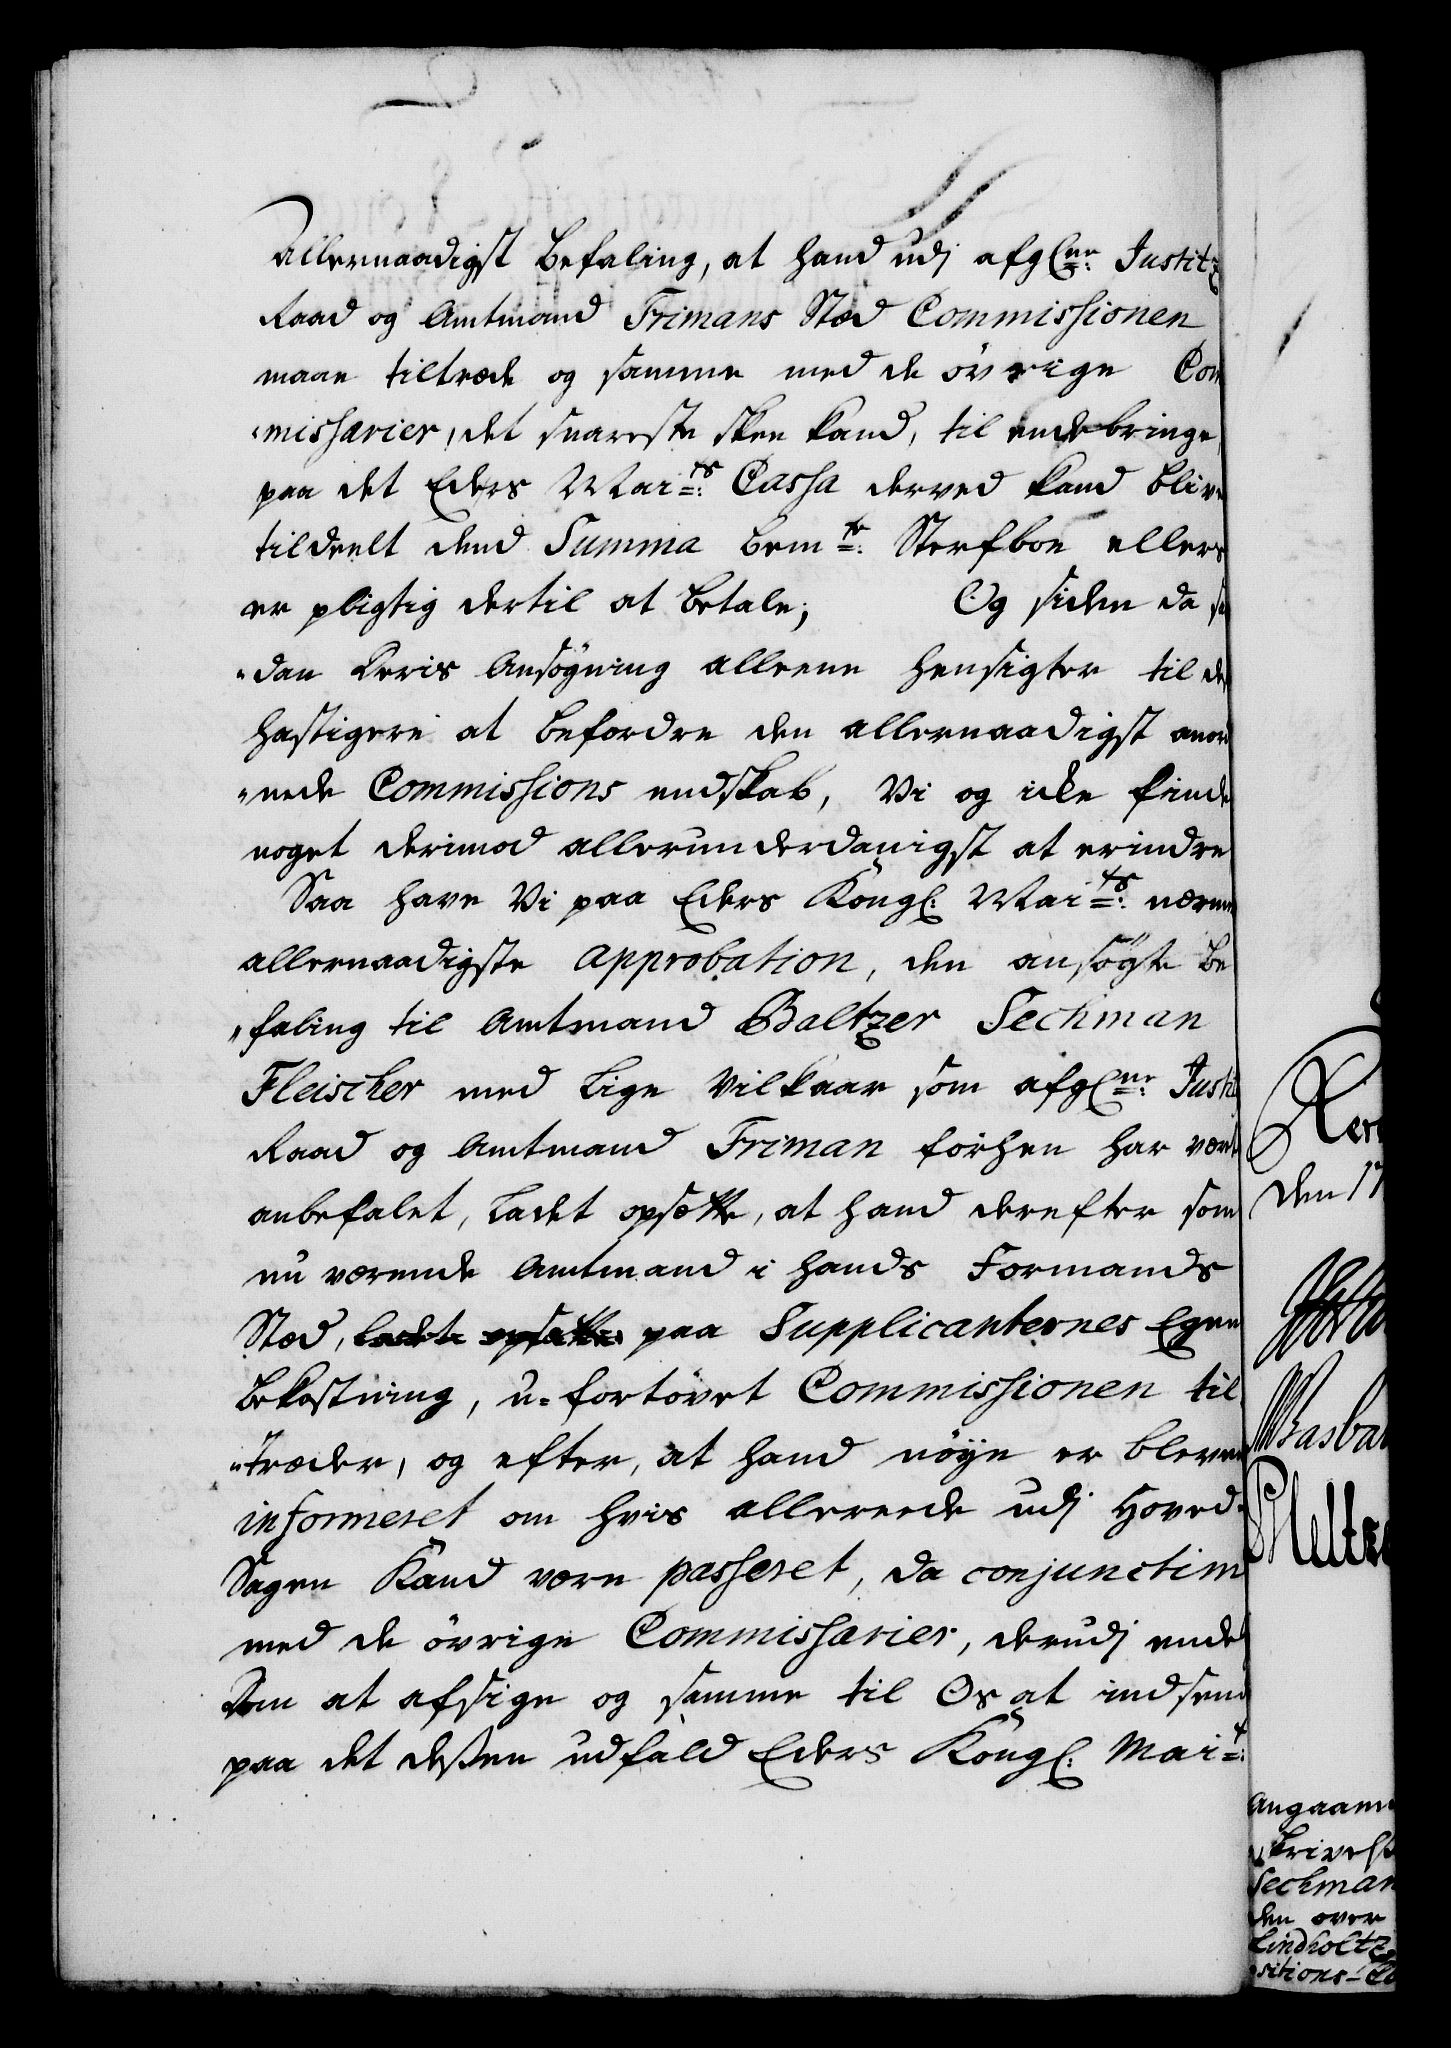 Allernaadigst Befaling, at hand udj afg\[ne\]: Justitz
Raad og Amtmand Frimans Sted Commissionen
maae tiltræde og samme med de övrige Com
missarier, det snareste skee kand, til endebringe,
paa det Eders Mai^ts: Cassa derved kand blive
tildeelt dend Summa bem^te: Sterfboe ellers
er pligtig dertil at betale; Og siden da saa
"dan deris Ansøgning alleene hensigter til des
hastigere at befordre den allernaadigst anord
"nede Commissions endskab, Vi og icke finde
noget derimod allerunderdanigst at erindre
Saa have Vi paa Eders Kongl: Mai^ts: nærmere
allernaadigste approbation, den ansögte Be
"faling til Amtmand Baltzer Sechman
Fleischer med Lige Vilkaar som afgl^ne: Justitz
Raad og Amtmand Friman forhen har været
anbefalet, Ladet opsætte, at hand derefter som
nu værende Amtmand i hands Formands
Sted, ladet opsætte paa Supplicanternes Egen
bekostning, u=fortövet Commissionen til
"træder, og efter, at hand nöye er bleven
informeret om hvis allereede udj Hoved-
Sagen Kand være passeret, da conjunctim
med de övrige Commissarier, derudj endelig
Dom at afsige og samme til Os at indsende
paa det dessen udfald Eders Kongl: Mai^t:
Den 17
Angaaen
skrivels
Sechman
den over
Lindholtz
sitions-Co